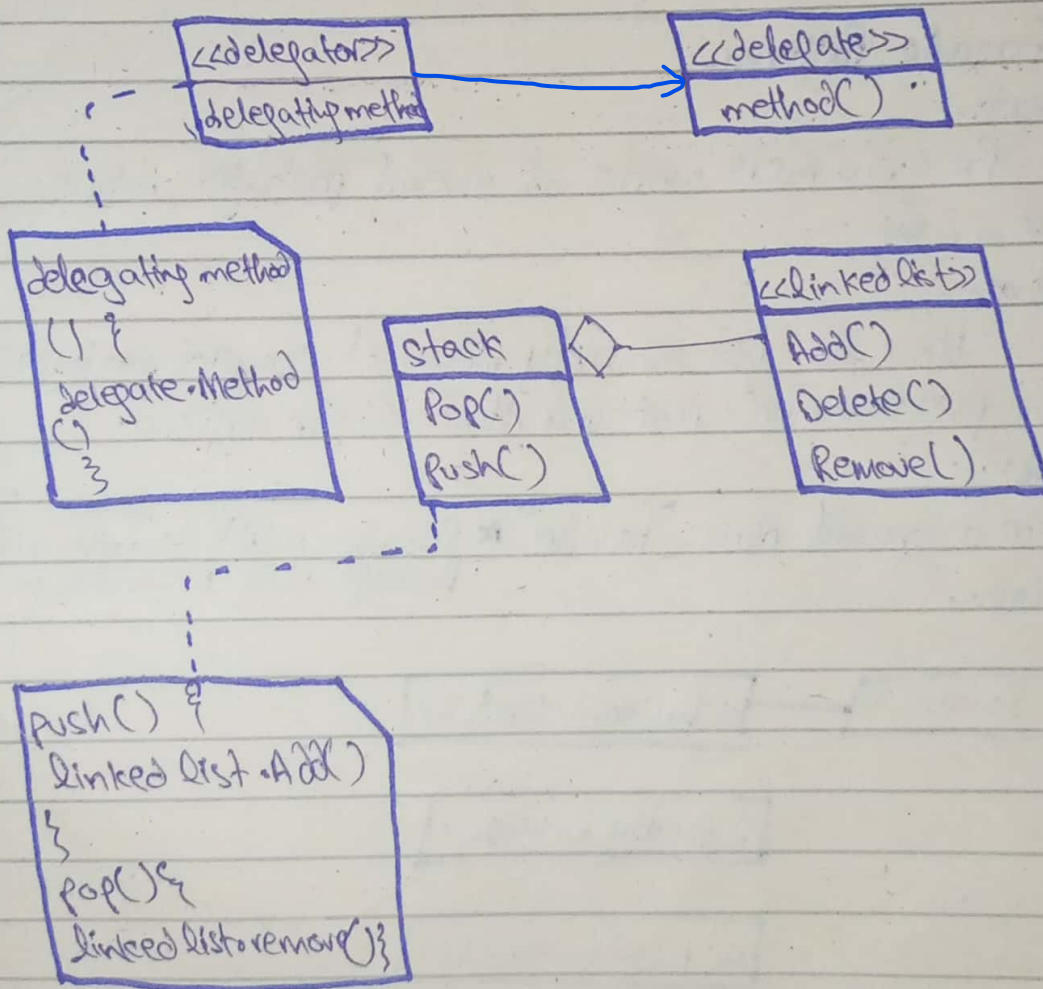 <<delegator>>
delegating method
<<delegate>>
method()
delegating method
() {
delegate.Method
()
}
Stack
Pop()
Push()
<<linked list>>
Add()
Delete()
Remove()
push() {
linked list.Add()
}
pop(){
linked list.remove()}